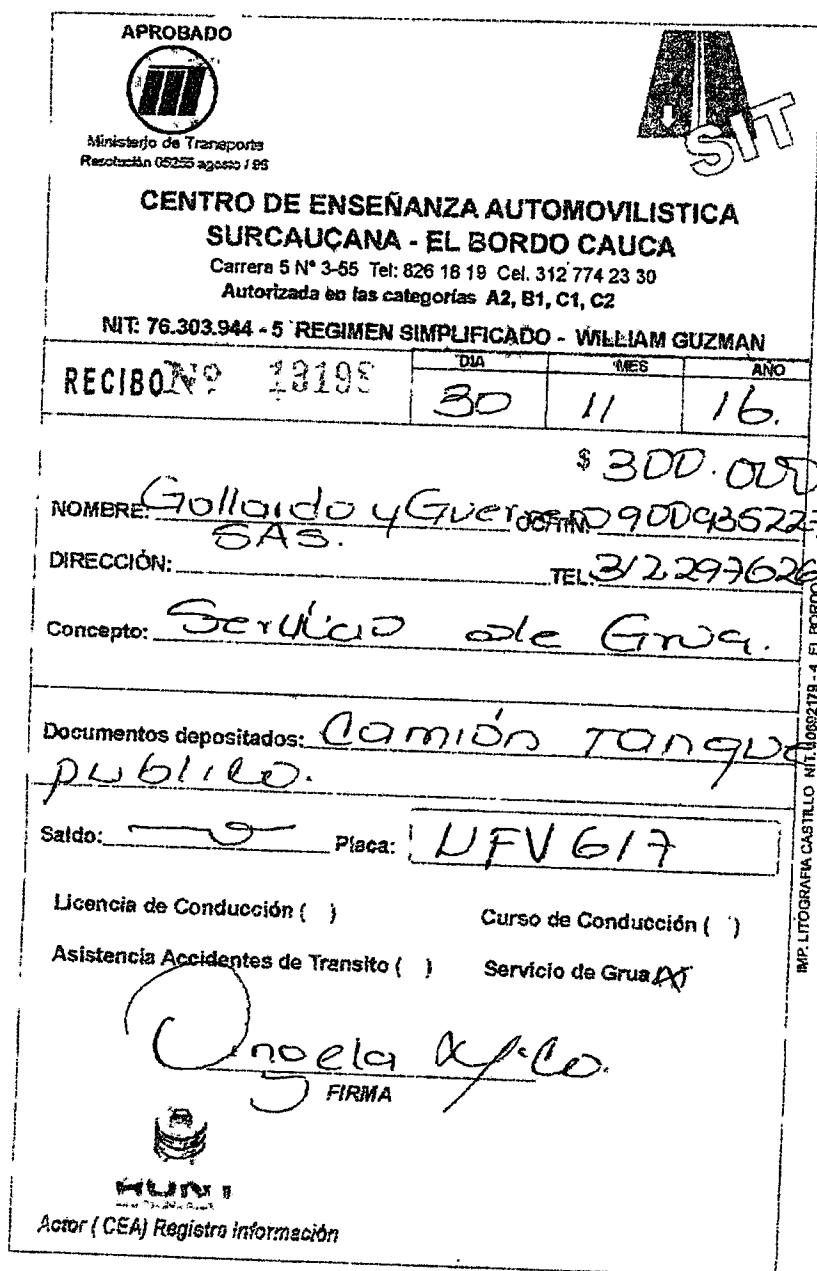 APROBADO
Ministerio de Transporte
Resolución 05255 agosto / 96
SIT
CENTRO DE ENSEÑANZA AUTOMOVILISTICA
SURCAUCANA - EL BORDO CAUCA
Carrera 5 Nº 3-55 Tel: 826 18 19 Cel. 312 774 23 30
Autorizada en las categorías A2, B1, C1, C2
NIT: 76.303.944 - 5 REGIMEN SIMPLIFICADO - WILLIAM GUZMAN
RECIBO Nº
DIA MES AÑO
30 11 16.
$ 300.000
NOMBRE: Gallardo y Guerrero 900936227
SAS.
DIRECCIÓN: TEL: 312297626
Concepto: Servicio de Grua.
Documentos depositados: Camión Tanque
publico.
Saldo: Placa: UFV 617
Licencia de Conducción ( ) Curso de Conducción ( )
Asistencia Accidentes de Transito ( ) Servicio de Grua (X)
Angela
FIRMA
Actor ( CEA) Registro información
IMP. LITOGRAFIA CASTILLO NIT. EL BORDO